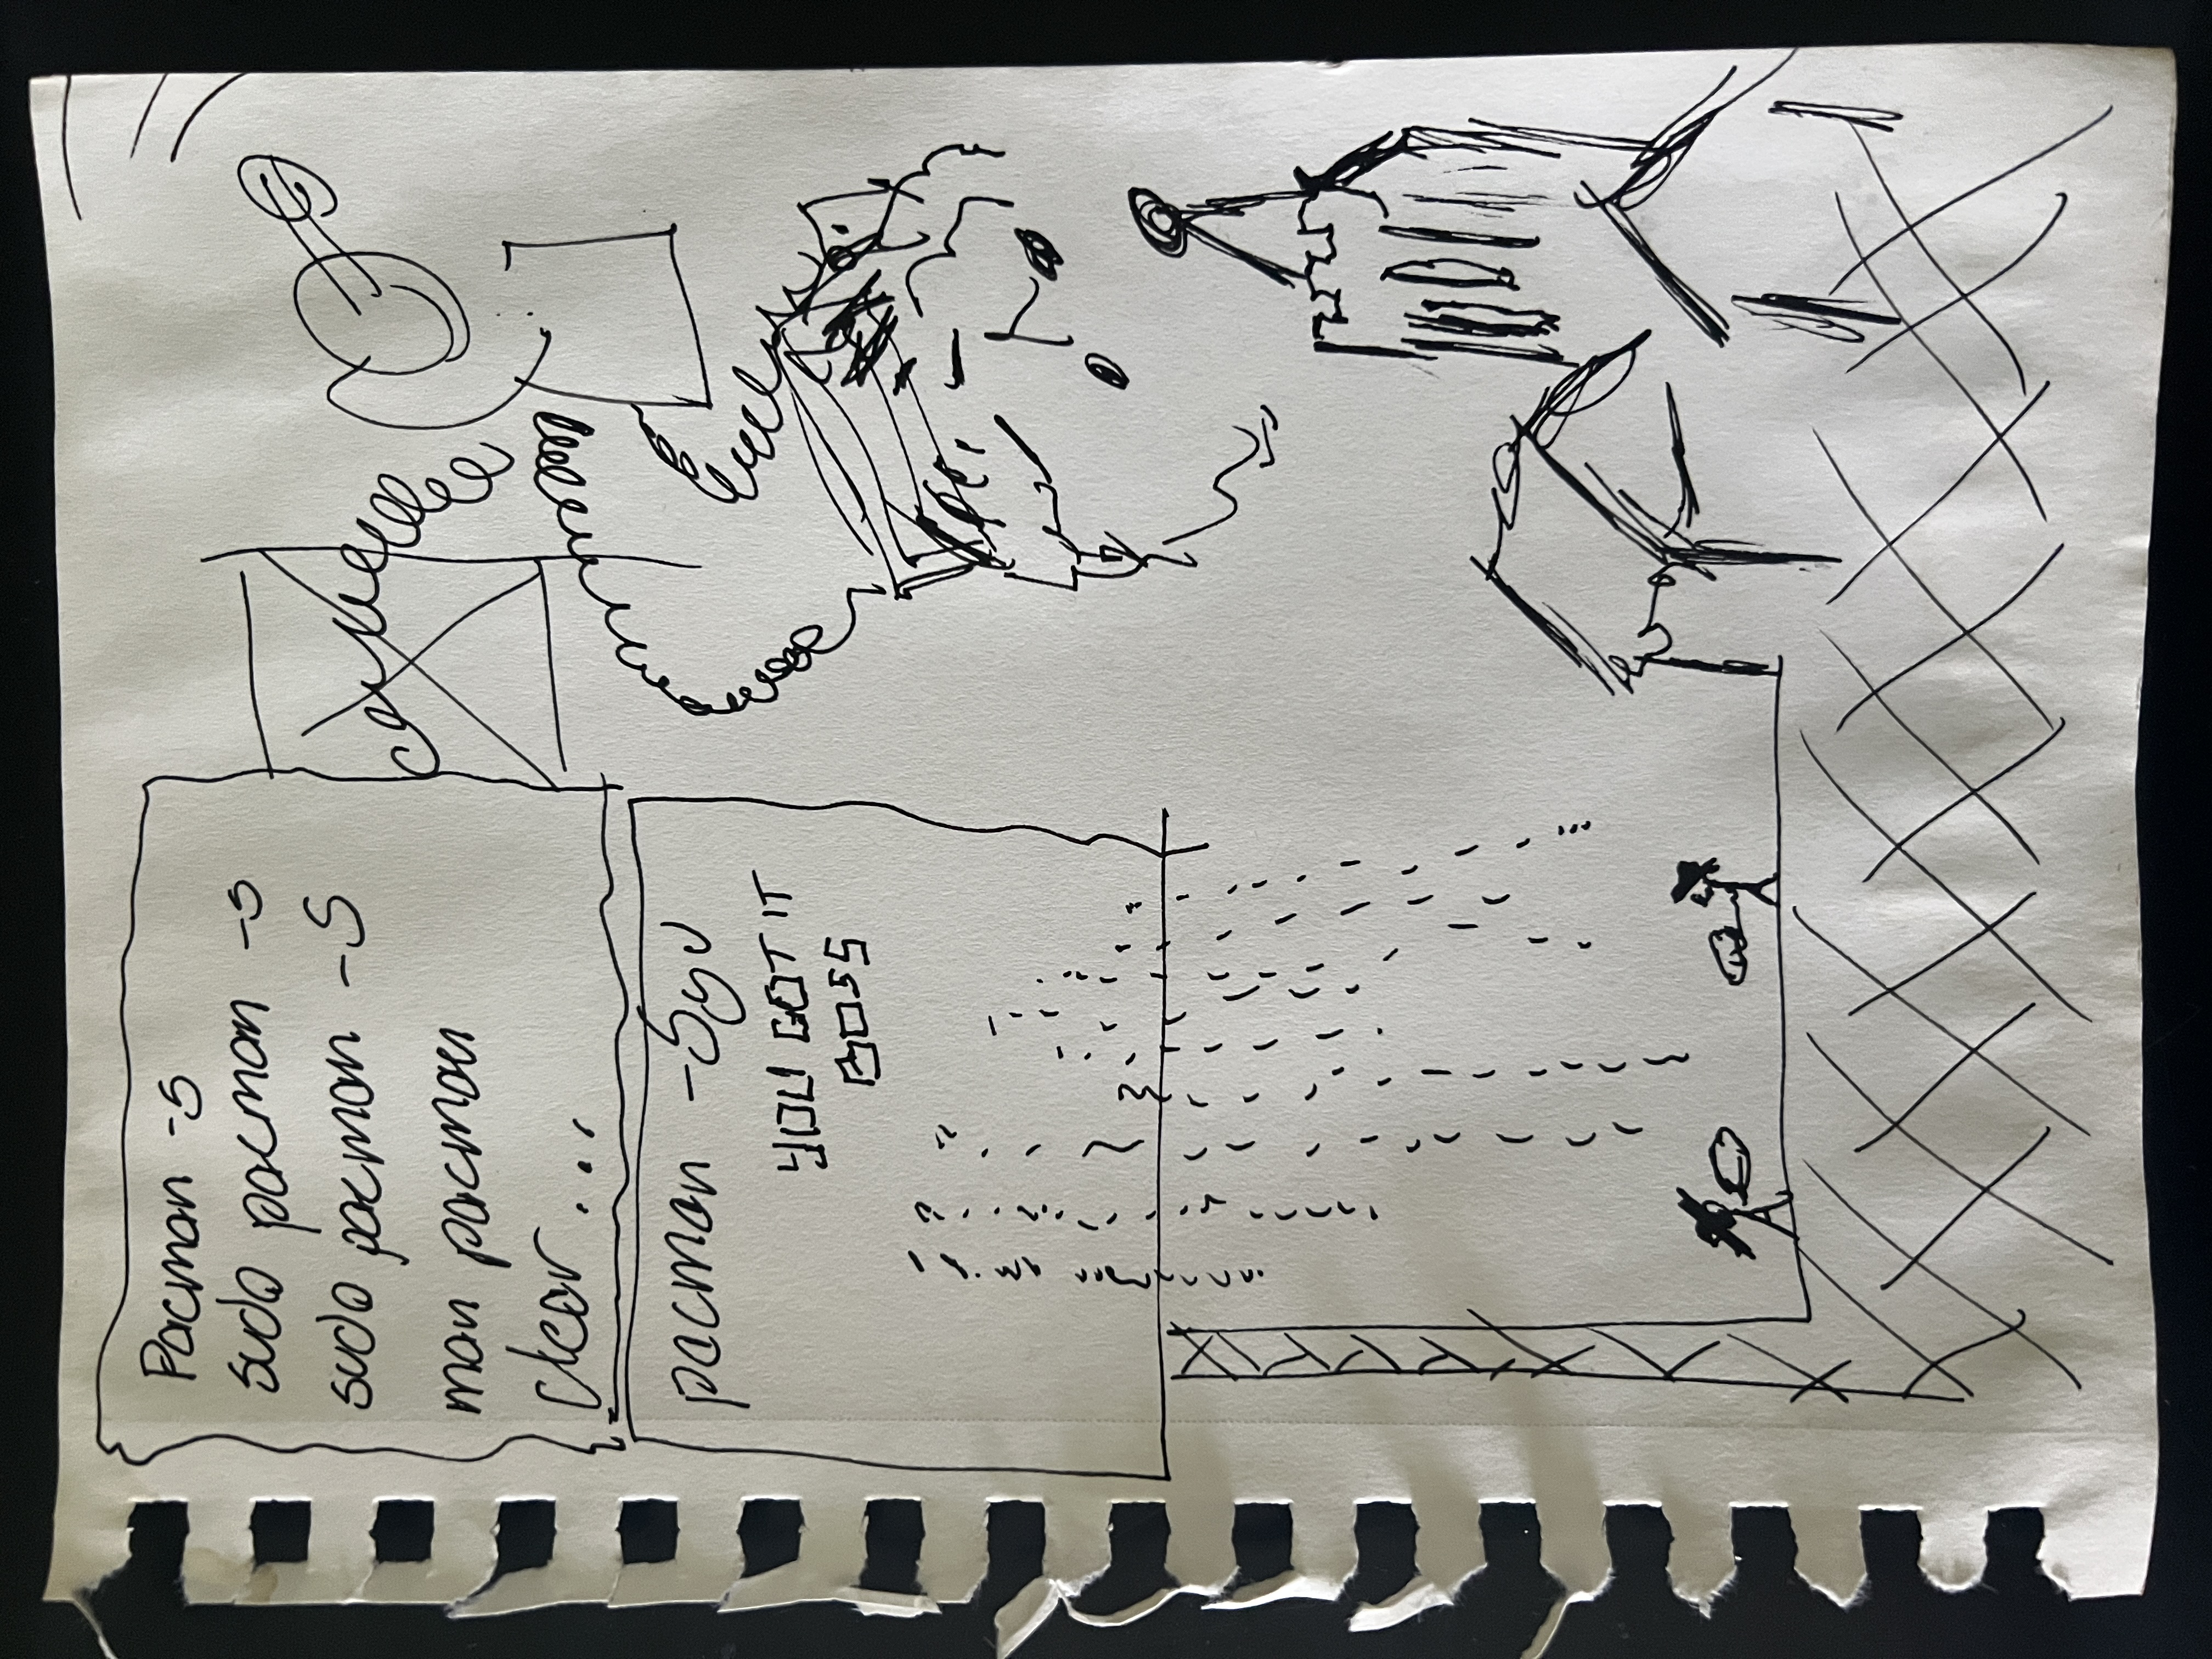 Pacman -s
sudo pacman -s
sudo pacman -S
man pacman
clear...
pacman -Syu
YOU GOT IT
BOSS